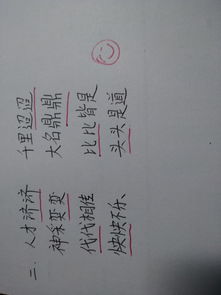 二、人才济济 千里迢迢
神采奕奕 大名鼎鼎
代代相传 比比皆是
怏怏不乐、头头是道